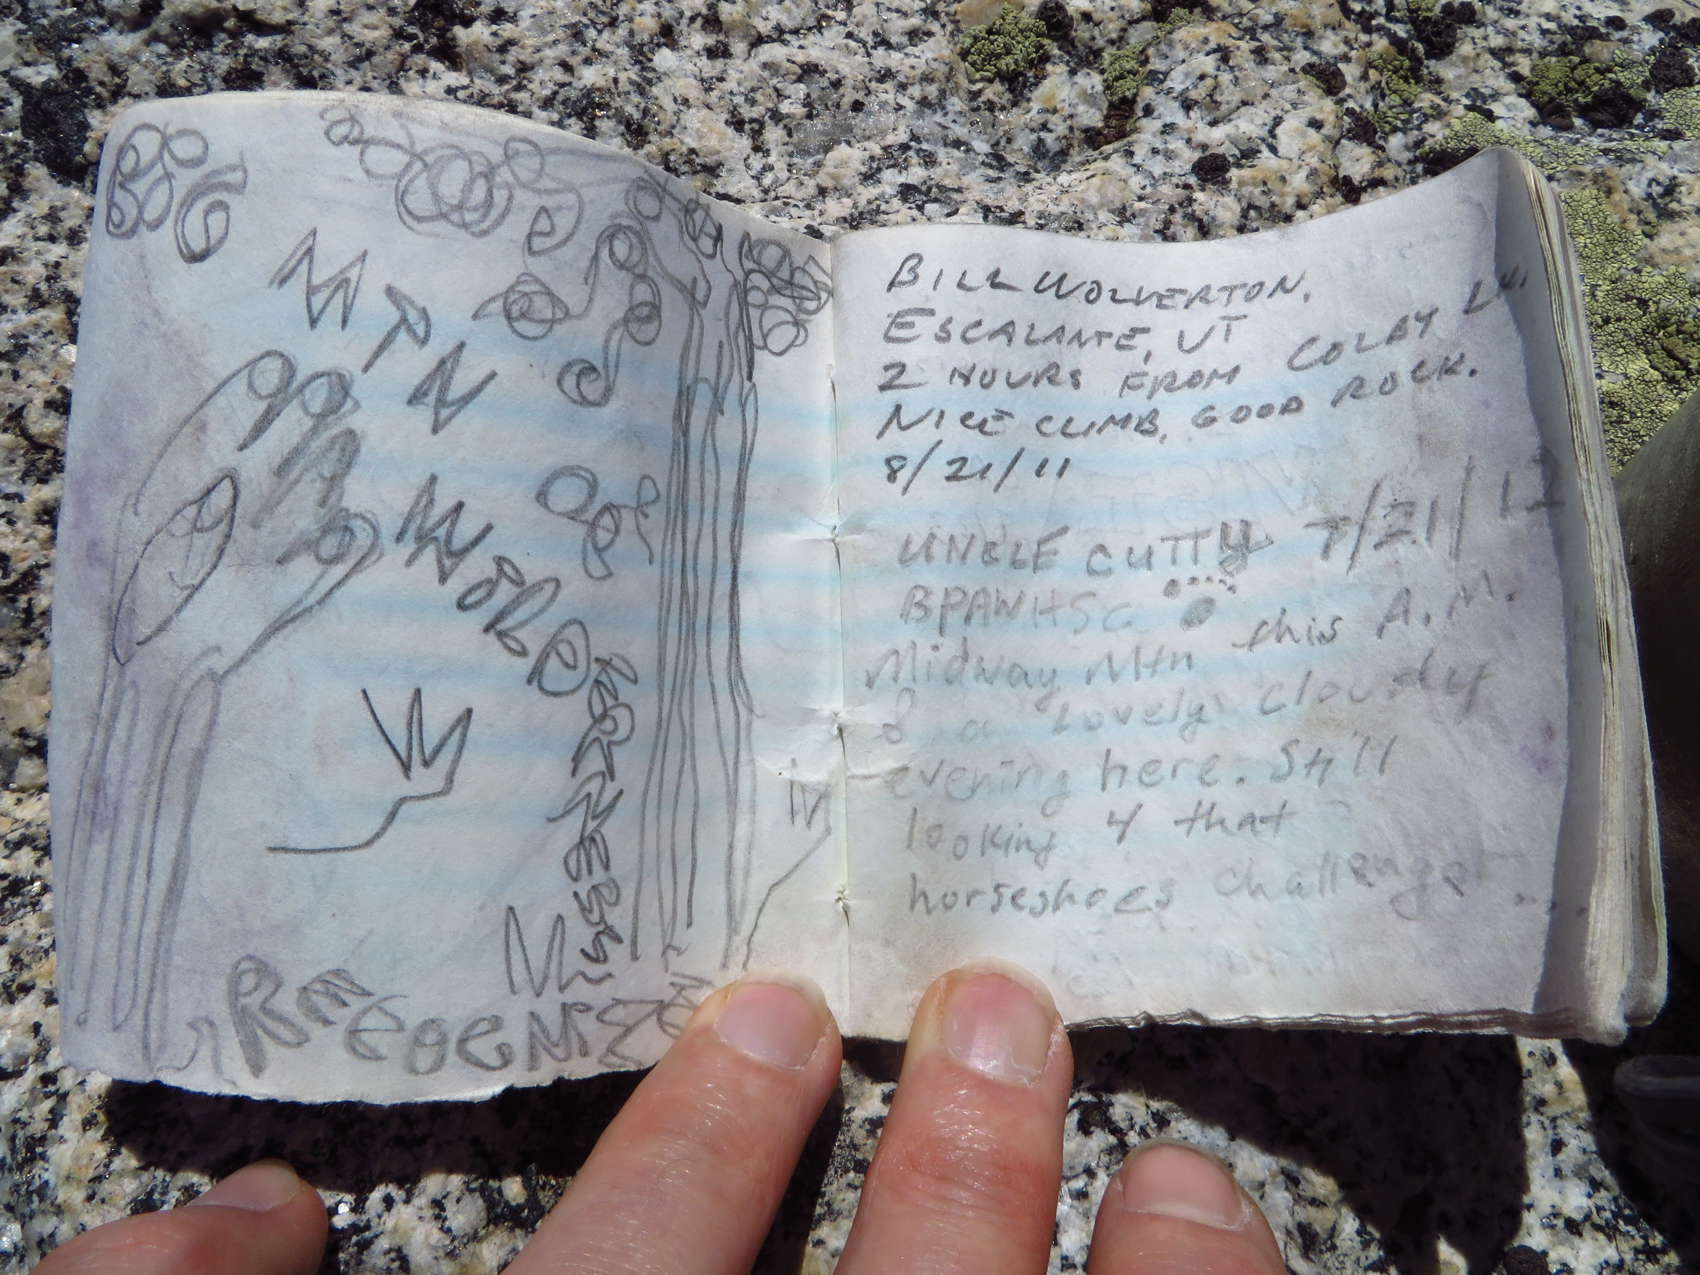 BIG
MTN
MORE
REEGENS
BILL WOLVERTON.
ESCALANTE, UT
2 HOURS FROM COLBY LK.
NICE CLIMB, GOOD ROCK.
8/21/11
UNCLE CUTTY 7/21/12
BPAWHSC
Midway Mtn this A.M.
& a Lovely cloudy
evening here. Still
looking 4 that
horseshoes challenge ...